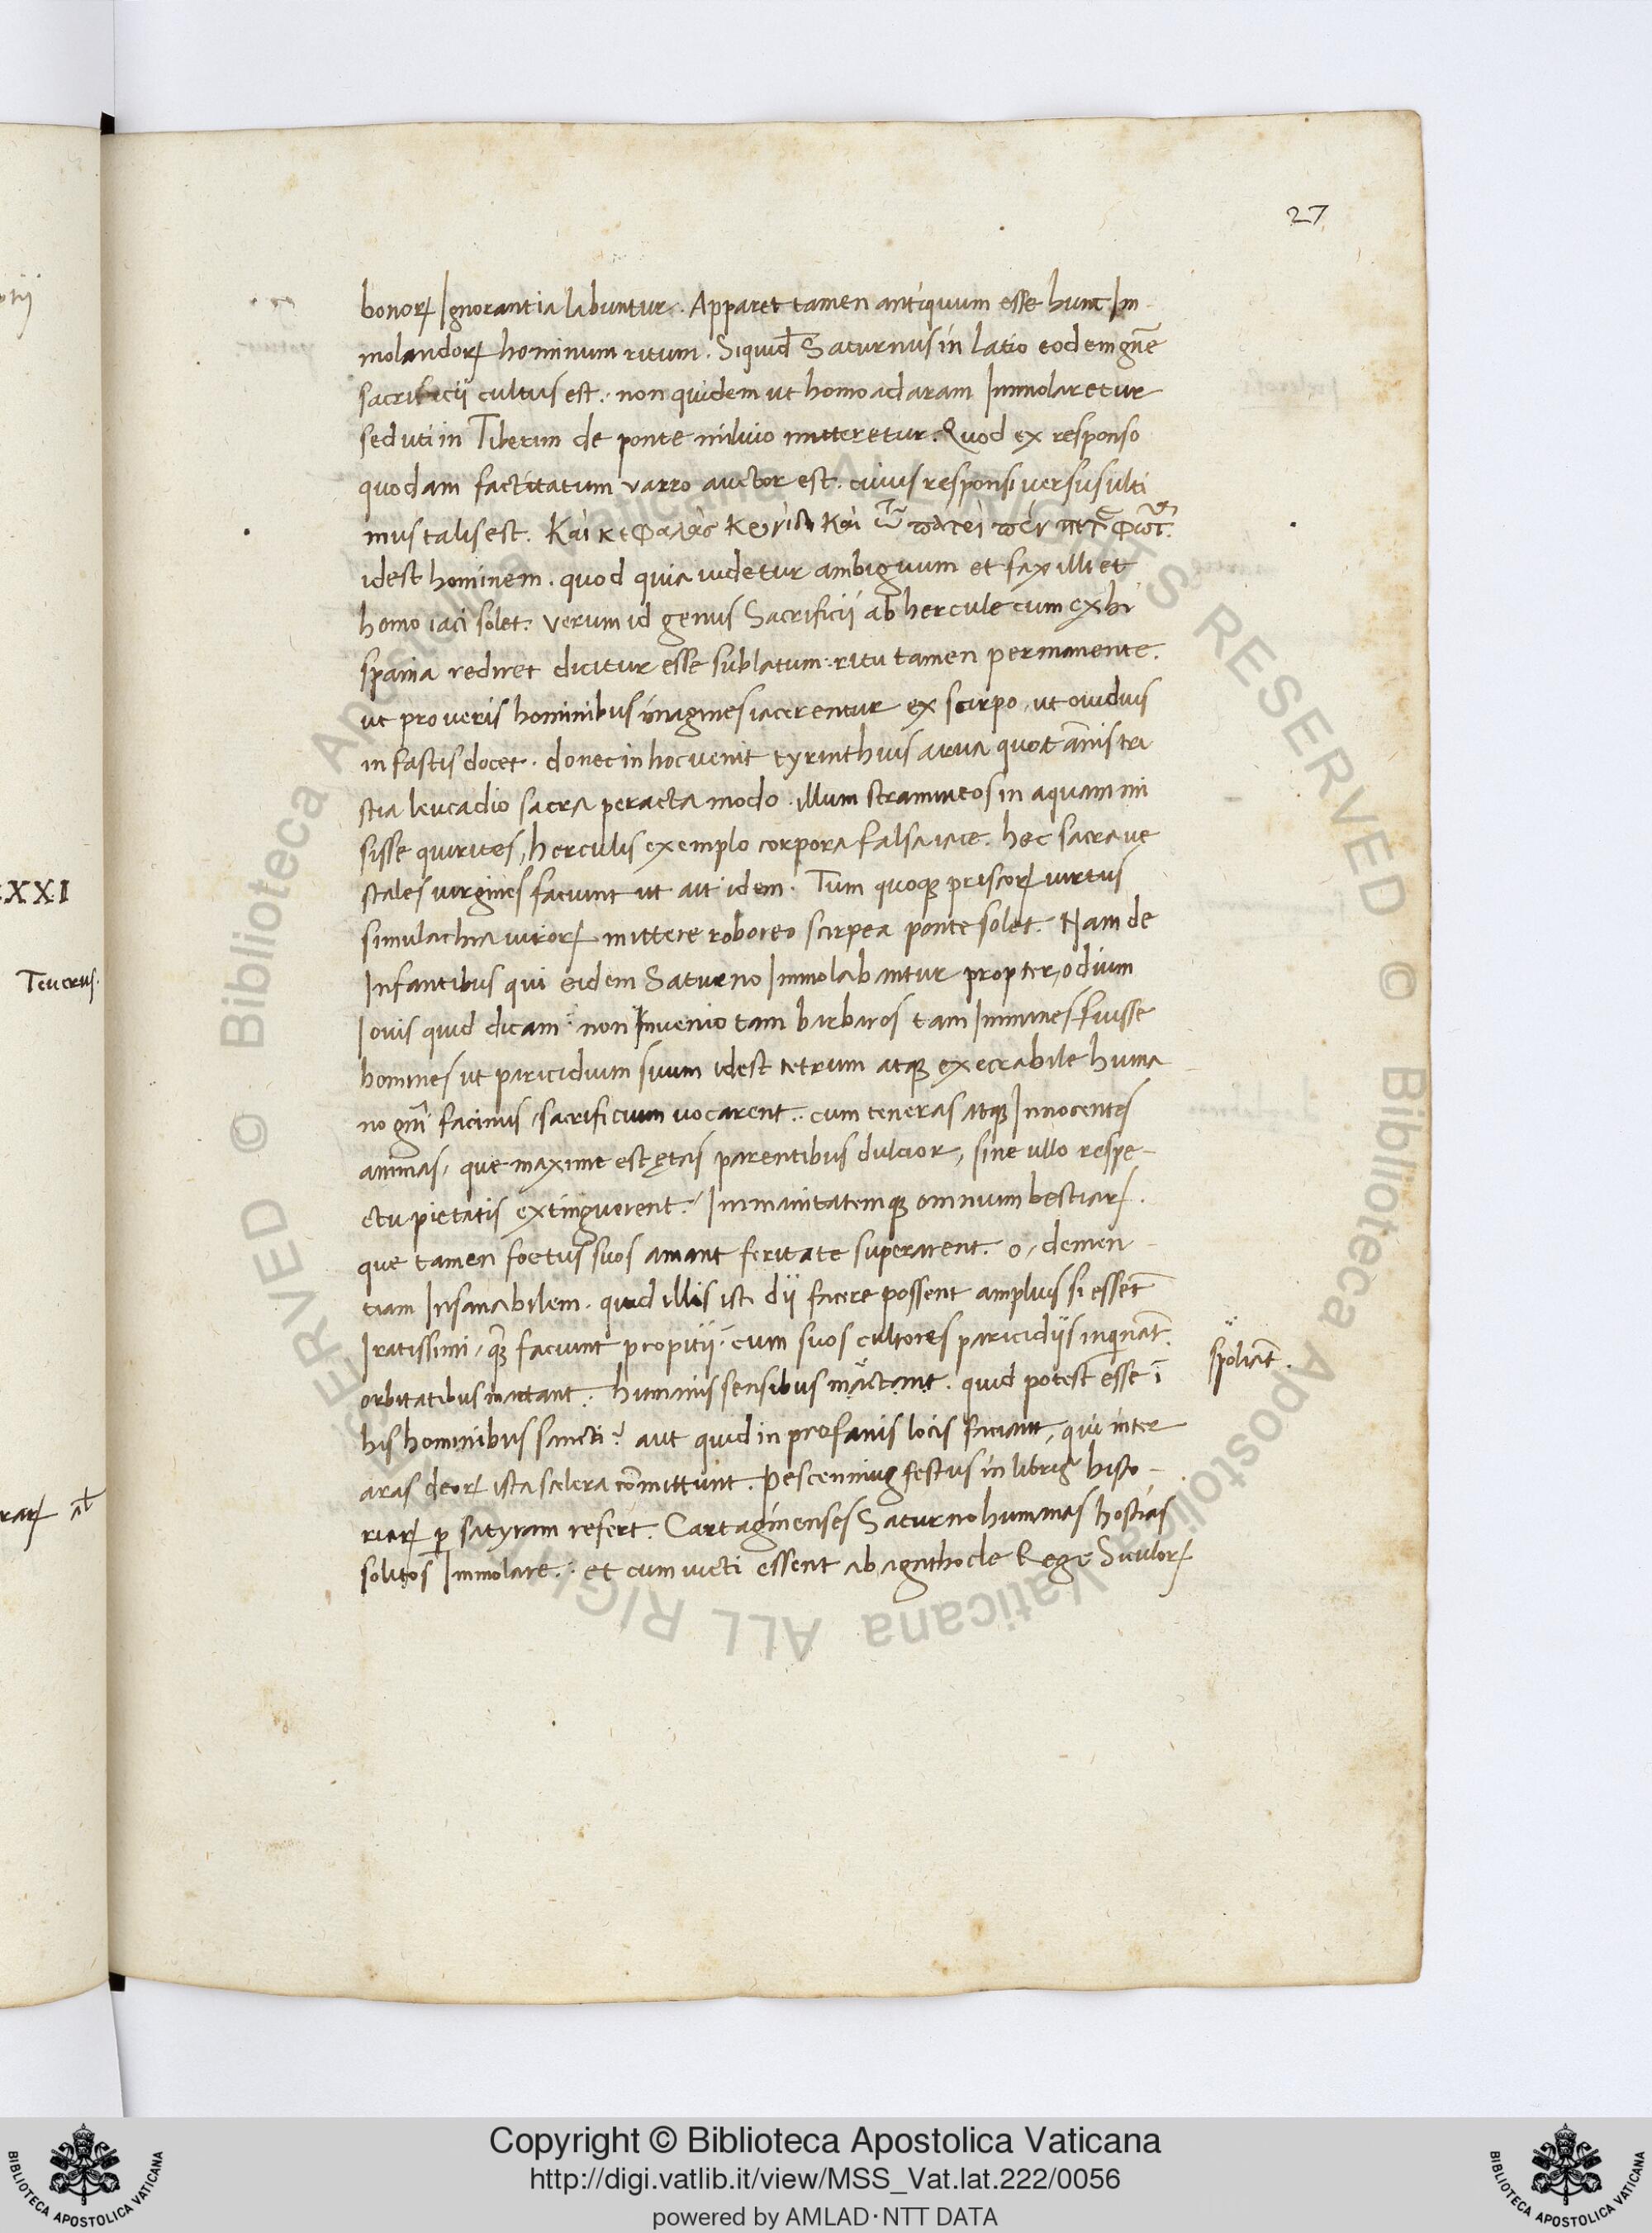 27
bonorꝝ Ignorantia labuntur. Apparet tamen antiquum esse hunc Im-
molandorꝝ hominum ritum. Siquid̄ Saturnus in latio eodem gn̄e
sacrificii cultus est. non quidem ut homo ad aram Immolaretur
sed uti in Tiberim de ponte miluio mitteretur. Quod ex responso
quodam factitatum varro auctor est. cuius responsi versus ulti
mus talis est. Και κεφαλας
idest hominem. quod quia uidetur ambiguum et fax illi et
homo iaci solet. verum id genus Sacrificii ab hercule cum ex hi
spania rediret dicitur esse sublatum: ritu tamen permanente.
ut pro ueris hominibus imagines iacerentur ex scirpo, ut ouidius
in fastis docet. donec in hoc uenit tyrinthius arua quot an̄is tri
stia leucadio sacra peracta modo. illum stramineos in aquam mi
sisse quirites, herculis exemplo corpora falsa iace. hec sacra ue
stales uirgines faciunt ut ait idem. Tum quoqꝫ priscorꝝ uirtus
simulachra uirorꝝ mittere roboreo scirpea ponte solet. Nam de
Infantibus qui eidem Saturno Immolabantur propter, odium
Iouis quid dicam: non Inuenio tam barbaros tam Immanes fuisse
homines ut paricidium suum idest tetrum atqꝫ execrabile huma
no gn̄i facinus, sacrificium uocarent.. cum teneras atqꝫ Innocentes
animas, que maxime est ętas parentibus dulcior, sine ullo respe-
ctu pietatis extinguerent. Immanitatemqꝫ omnium bestiarꝝ.
que tamen foetus suos amant feritate superarent. o, demen-
tiam Insanabilem. quid illis isti dii facere possent amplius si essēt
Iratissimi, qꝫ faciunt propitii. cum suos cultores paricidiis inquināt.
orbitatibus mactant. humanis sensibus mactant. quid potest esse ī
spoliāt.
his hominibus sancti? aut quid in profanis locis faciant, qui inter
aras deorꝝ ista scelera com̄ittunt. Pescennius festus in libris histo-
riarꝝ ꝑ satyram refert. Cartaginenses Saturno humanas hostias
solitos Immolare.. et cum uicti essent ab agathocle Rege Siculorꝝ
XXI
Teucrus.
rarꝝ aƚ
Copyright © Biblioteca Apostolica Vaticana
http://digi.vatlib.it/view/MSS_Vat.lat.222/0056
powered by AMLAD·NTT DATA
BIBLIOTECA APOSTOLICA VATICANA
BIBLIOTECA APOSTOLICA VATICANA
© Biblioteca Apostolica Vaticana ALL RIGHTS RESERVED
© Biblioteca Apostolica Vaticana ALL RIGHTS RESERVED